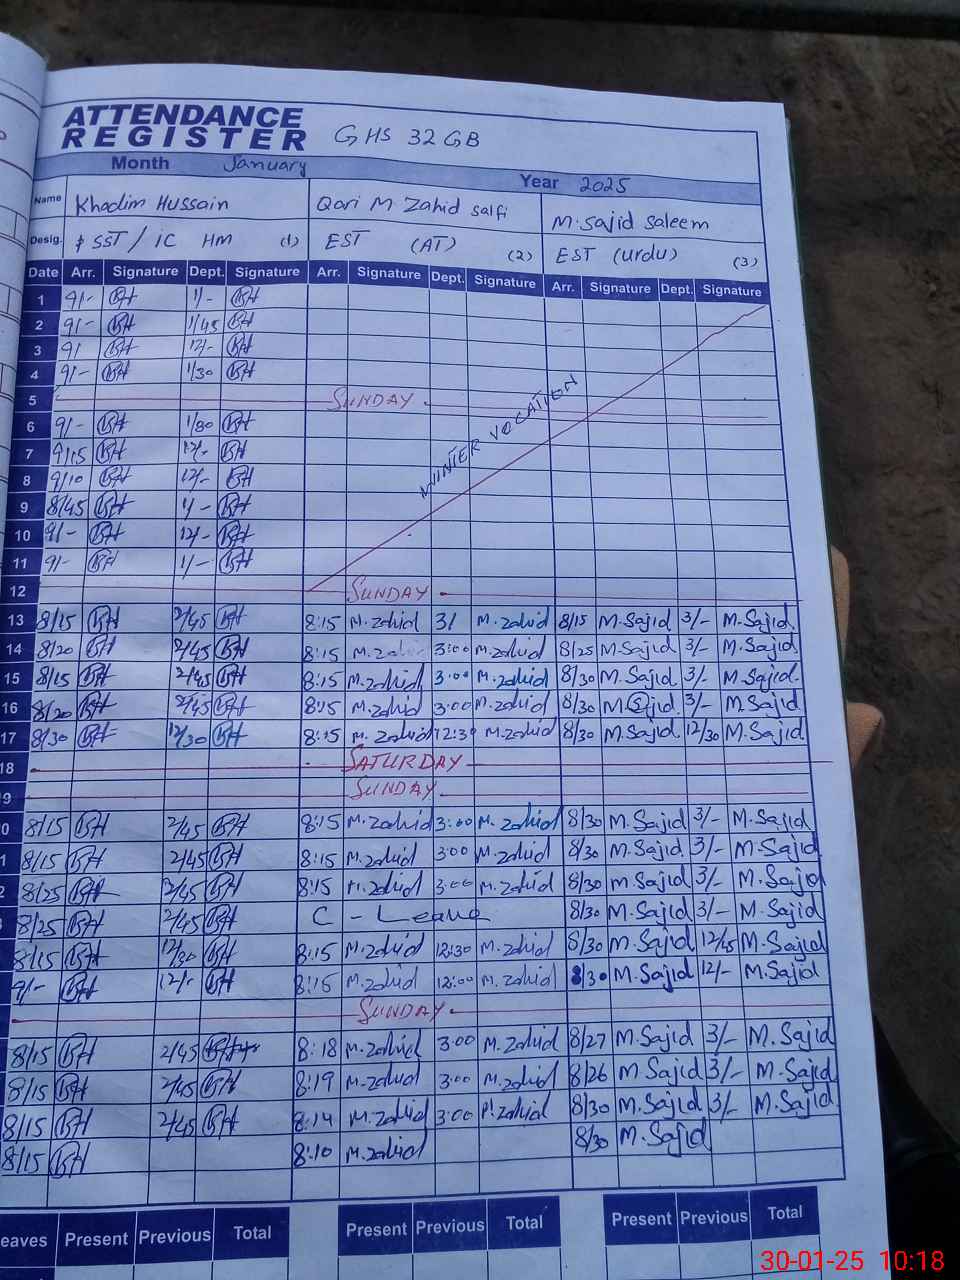 ATTENDANCE
REGISTER GHS 32 GB
Month January Year 2025
Name Khadim Hussain Qari M Zahid Salfi M. Sajid Saleem
Desig. SST / IC HM (1) EST (AT) (2) EST (Urdu) (3)
Date Arr. Signature Dept. Signature Arr. Signature Dept. Signature Arr. Signature Dept. Signature
1 9/- KH 1/- KH
2 9/- KH 1/45 KH
3 9/ KH 12/- KH
4 9/- KH 1/30 KH
5 SUNDAY
WINTER VOCATION
6 9/- KH 1/30 KH
7 9/15 KH 12/- KH
8 9/10 KH 12/- KH
9 8/45 KH 1/- KH
10 9/- KH 12/- KH
11 9/- KH 1/- KH
12 SUNDAY
13 8/15 KH 2/45 KH 8:15 M.Zahid 3/ M.Zahid 8/15 M.Sajid 3/- M.Sajid
14 8/20 KH 2/45 KH 8:15 M.Zahid 3:00 M.Zahid 8/25 M.Sajid 3/- M.Sajid
15 8/15 KH 2/45 KH 8:15 M.Zahid 3:00 M.Zahid 8/30 M.Sajid 3/- M.Sajid
16 8/20 KH 2/45 KH 8:15 M.Zahid 3:00 M.Zahid 8/30 M.Sajid 3/- M.Sajid
17 8/30 KH 12/30 KH 8:15 M.Zahid 12:30 M.Zahid 8/30 M.Sajid 12/30 M.Sajid
18 SATURDAY
9 SUNDAY
0 8/15 KH 2/45 KH 8:15 M.Zahid 3:00 M.Zahid 8/30 M.Sajid 3/- M.Sajid
1 8/15 KH 2/45 KH 8:15 M.Zahid 3:00 M.Zahid 8/30 M.Sajid 3/- M.Sajid
2 8/25 KH 2/45 KH 8:15 M.Zahid 3:00 M.Zahid 8/30 M.Sajid 3/- M.Sajid
8/25 KH 2/45 KH C - Leave 8/30 M.Sajid 3/- M.Sajid
8/15 KH 12/30 KH 8:15 M.Zahid 12:30 M.Zahid 8/30 M.Sajid 12/45 M.Sajid
9/- KH 12/- KH 8:15 M.Zahid 12:00 M.Zahid 8/30 M.Sajid 12/- M.Sajid
SUNDAY
8/15 KH 2/45 KH 8:18 M.Zahid 3:00 M.Zahid 8/27 M.Sajid 3/- M.Sajid
8/15 KH 2/45 KH 8:19 M.Zahid 3:00 M.Zahid 8/26 M.Sajid 3/- M.Sajid
8/15 KH 2/45 KH 8:14 M.Zahid 3:00 M.Zahid 8/30 M.Sajid 3/- M.Sajid
8/15 KH 8:10 M.Zahid 8/30 M.Sajid
eaves Present Previous Total Present Previous Total Present Previous Total
30-01-25 10:18